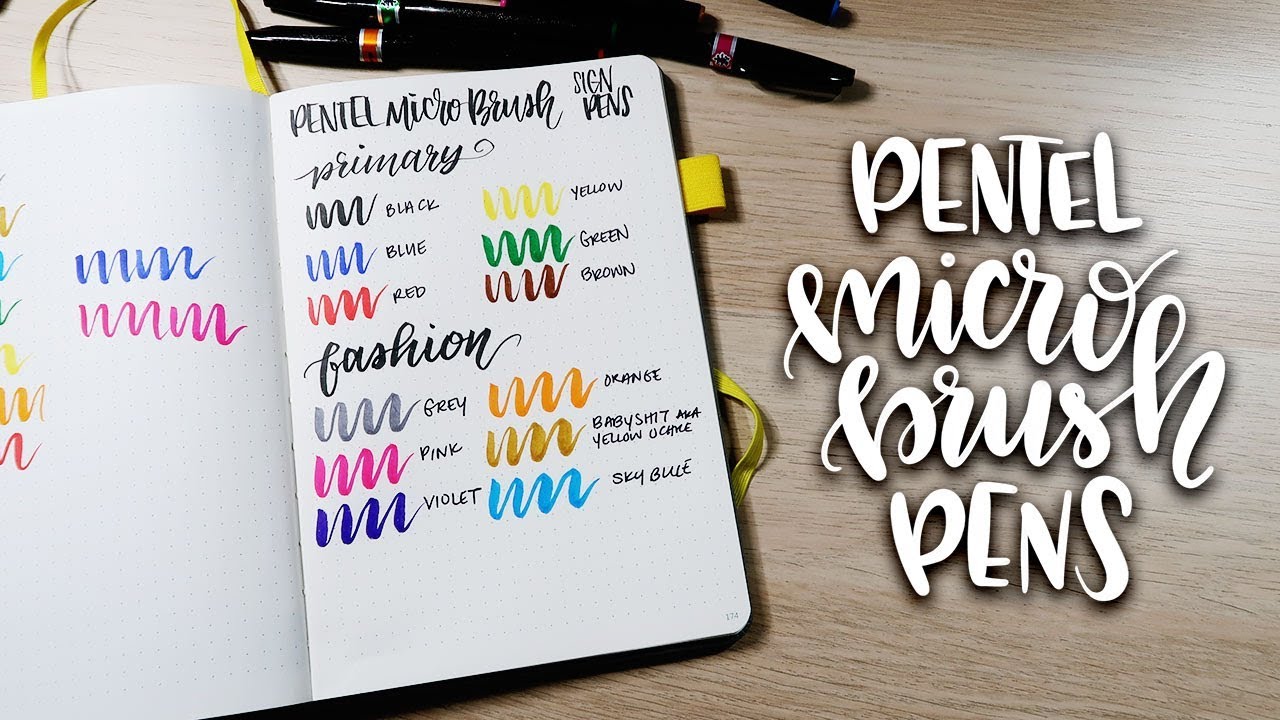 PENTEL Micro Brush SIGN PENS
primary
BLACK
BLUE
RED
YELLOW
GREEN
BROWN
fashion
GREY
PINK
VIOLET
ORANGE
BABYSHIT AKA
YELLOW OCHRE
SKY BLUE
174
PENTEL
micro
brush
PENS